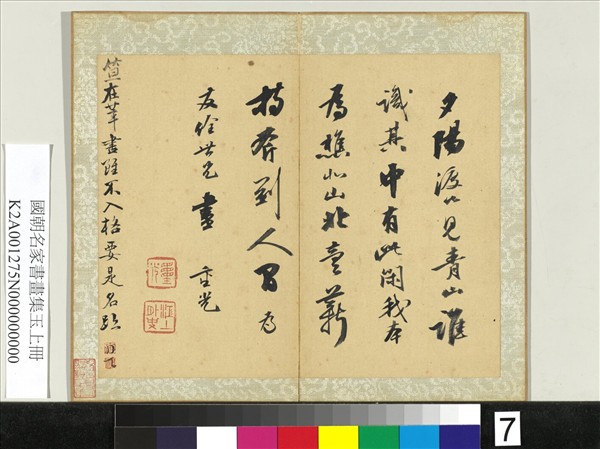 夕陽渡口見青山誰
識其中有此閒我本
為樵北山北賣薪
持斧到人間 為
世兄畫 重光
重光
江上外史
笪在莘書雖不入格要是名跡
國朝名家書畫集玉上冊
K2A001275N000000000
7